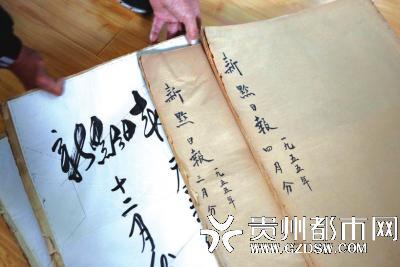 新黔日报
十二月
新黔日報 二月份
一九五五年
新黔日報 四月份
一九五五年
贵州都市网
WWW.GZDSW.COM